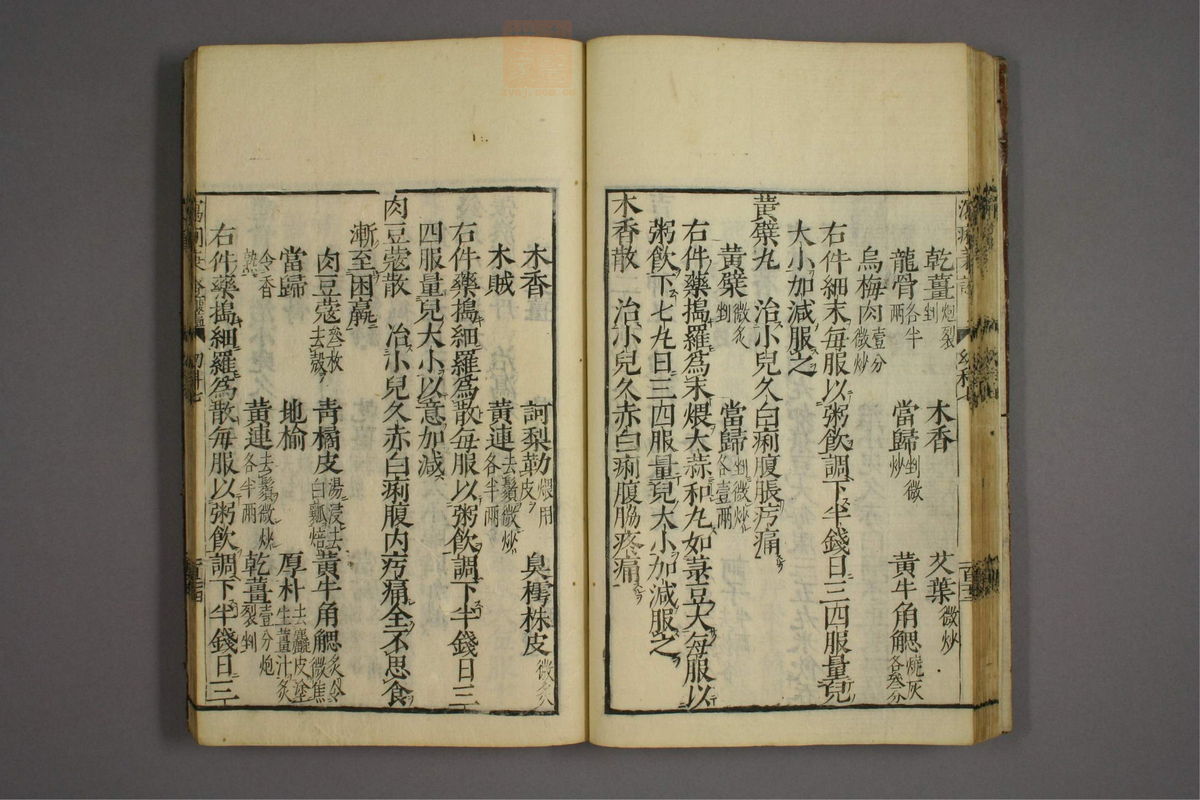 乾薑炮裂剉 木香 艾葉微炒
龍骨各半兩 當歸剉微炒 黃牛角䚡燒灰各叄分
烏梅肉壹分微炒
右件細末每服以粥飲調下半錢日三四服量兒
大小加減服之
黃蘗丸 治小兒久白痢腹脹疞痛
黃蘗微炙剉 當歸剉微炒各壹兩
右件藥搗羅爲末煨大蒜和丸如菉豆大每服以
粥飲下七丸日三四服量兒大小加減服之
木香散二 治小兒久赤白痢腹脇疼痛
木香 訶梨勒煨用皮 臭樗株皮微炙
木賊 黃連去鬚微炒各半兩
右件藥搗細羅爲散每服以粥飲調下半錢日三
四服量兒大小以意加減
肉豆蔻散 治小兒久赤白痢腹內疞痛全不思食
漸至困羸
肉豆蔻叄枚去殼 青橘皮湯浸去白瓤焙 黃牛角䚡炙令微焦
當歸 地榆 厚朴去麤皮塗生薑汁炙
令香熟 黃連去鬚微炒各半兩 乾薑壹分炮裂剉
右件藥搗細羅爲散每服以粥飲調下半錢日三